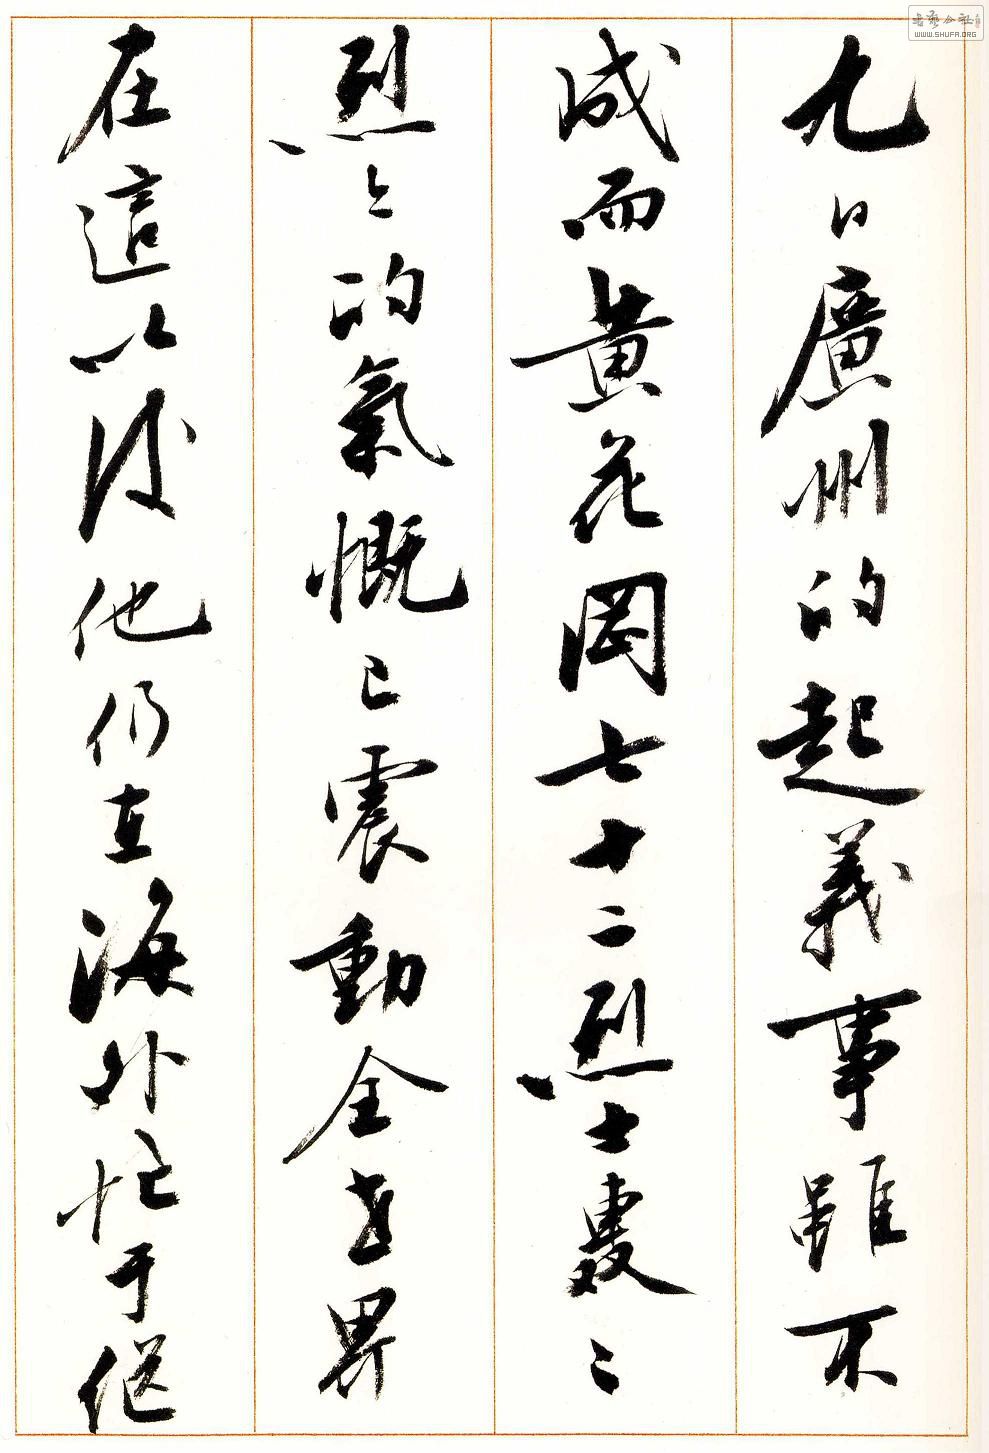 九日廣州的起義事雖不
成而黃花岡七十二烈士轰々
烈々的氣慨已震動全世界
在這以後他仍在海外忙于從
WWW.SHUFA.ORG